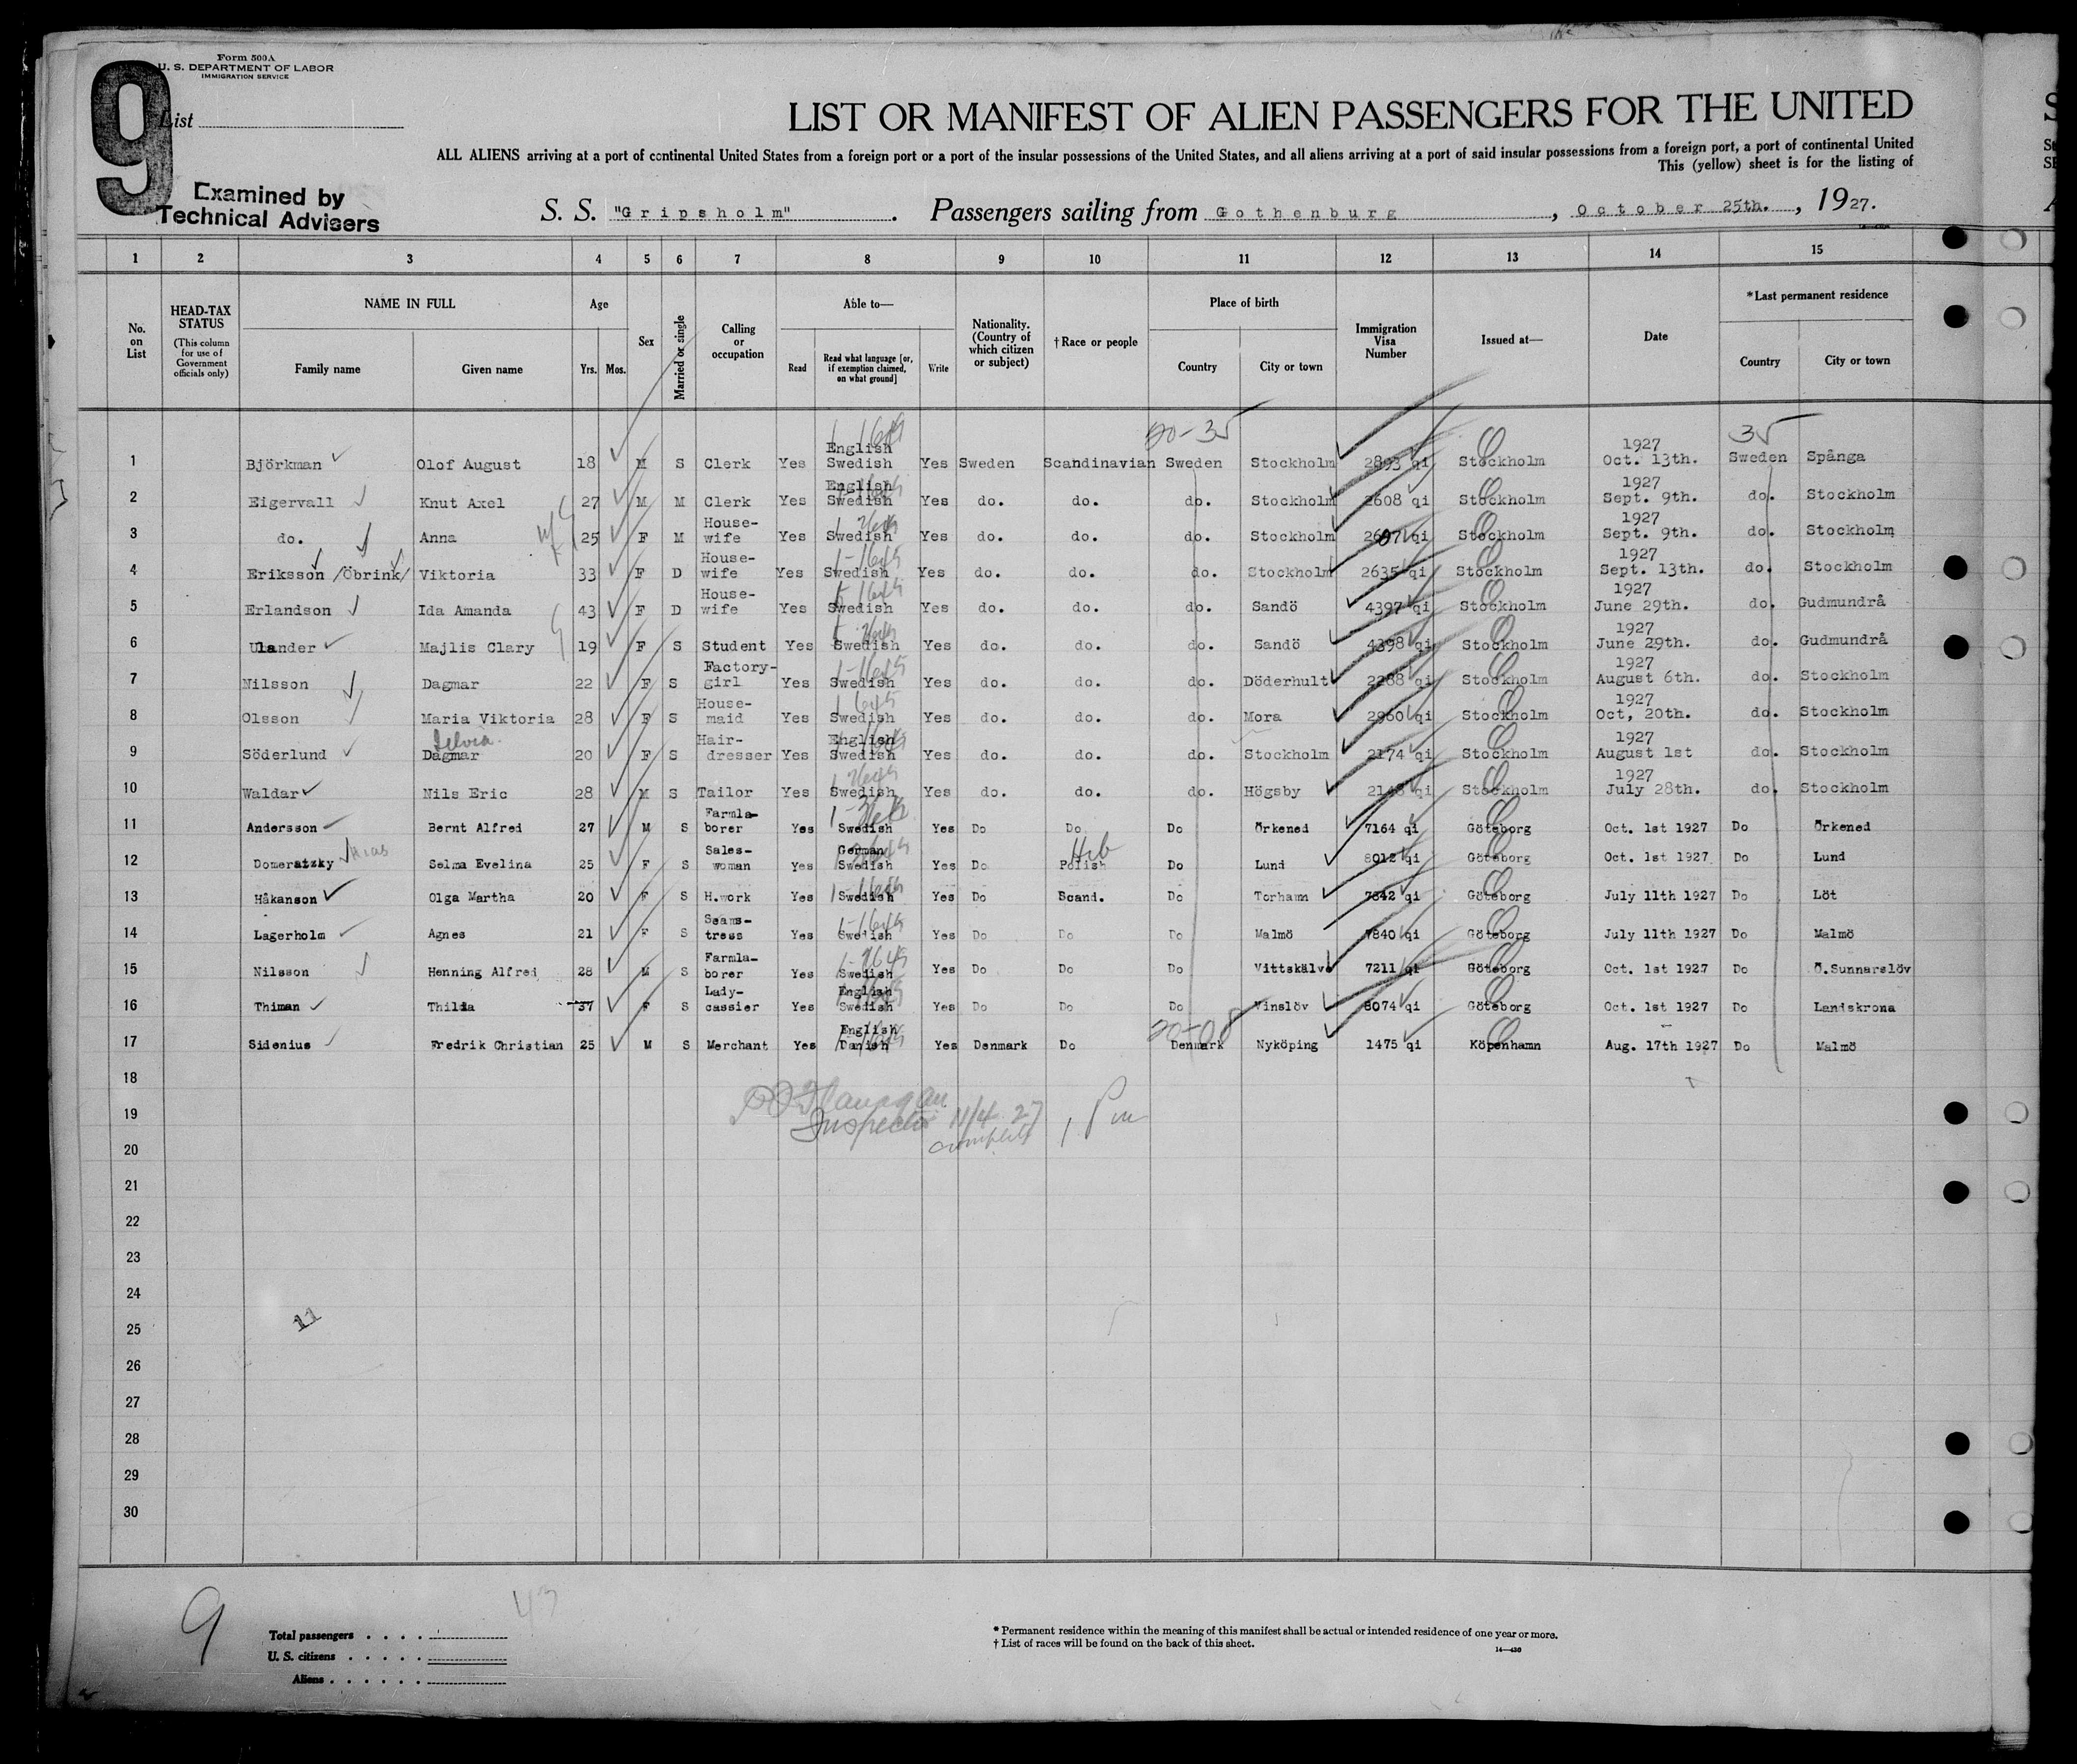 9
Form 500A
U. S. DEPARTMENT OF LABOR
IMMIGRATION SERVICE
List
LIST OR MANIFEST OF ALIEN PASSENGERS FOR THE UNITED
ALL ALIENS arriving at a port of continental United States from a foreign port or a port of the insular possessions of the United States, and all aliens arriving at a port of said insular possessions from a foreign port, a port of continental United
This (yellow) sheet is for the listing of
Examined by
Technical Advisers
S. S. "Gripsholm". Passengers sailing from Gothenburg, October 25th., 1927.
1 2 3 4 5 6 7 8 9 10 11 12 13 14 15
No. on List
HEAD-TAX STATUS (This column for use of Government officials only)
NAME IN FULL Family name Given name
Age Yrs. Mos.
Sex
Married or single
Calling or occupation
Able to— Read Read what language [or, if exemption claimed, on what ground] Write
Nationality. (Country of which citizen or subject)
†Race or people
Place of birth Country City or town
Immigration Visa Number
Issued at—
Date
*Last permanent residence Country City or town
20-35 35
1 Björkman Olof August 18 M S Clerk Yes English Swedish Yes Sweden Scandinavian Sweden Stockholm 2893 qi Stockholm 1927 Oct. 13th. Sweden Spånga
2 Eigervall Knut Axel 27 M M Clerk Yes English Swedish Yes do. do. do. Stockholm 2608 qi Stockholm 1927 Sept. 9th. do. Stockholm
3 do. Anna 25 F M House-wife Yes Swedish Yes do. do. do. Stockholm 2607 qi Stockholm 1927 Sept. 9th. do. Stockholm
4 Eriksson /Öbrink/ Viktoria 33 F D House-wife Yes Swedish Yes do. do. do. Stockholm 2635 qi Stockholm 1927 Sept. 13th. do. Stockholm
5 Erlandson Ida Amanda 43 F D House-wife Yes Swedish Yes do. do. do. Sandö 4397 qi Stockholm 1927 June 29th. do. Gudmundrå
6 Ulander Majlis Clary 19 F S Student Yes Swedish Yes do. do. do. Sandö 4398 qi Stockholm 1927 June 29th. do. Gudmundrå
7 Nilsson Dagmar 22 F S Factory-girl Yes Swedish Yes do. do. do. Döderhult 2288 qi Stockholm 1927 August 6th. do. Stockholm
8 Olsson Maria Viktoria 28 F S House-maid Yes Swedish Yes do. do. do. Mora 2960 qi Stockholm 1927 Oct, 20th. do. Stockholm
9 Söderlund Dagmar 20 F S Hair-dresser Yes English Swedish Yes do. do. do. Stockholm 2174 qi Stockholm 1927 August 1st do. Stockholm
10 Waldar Nils Eric 28 M S Tailor Yes Swedish Yes do. do. do. Högsby qi Stockholm 1927 July 28th. do. Stockholm
11 Andersson Bernt Alfred 27 M S Farmla-borer Yes Swedish Yes Do Do Do Örkened 7164 qi Göteborg Oct. 1st 1927 Do Örkened
12 Domeratzky Hias Selma Evelina 25 F S Sales-woman Yes German Swedish Yes Do Heb Polish Do Lund 8012 qi Göteborg Oct. 1st 1927 Do Lund
13 Håkanson Olga Martha 20 F S H.work Yes Swedish Yes Do Scand. Do Torhamn 7842 qi Göteborg July 11th 1927 Do Löt
14 Lagerholm Agnes 21 F S Seams-tress Yes Swedish Yes Do Do Do Malmö 7840 qi Göteborg July 11th 1927 Do Malmö
15 Nilsson Henning Alfred 28 M S Farmla-borer Yes Swedish Yes Do Do Do Vittskälve 7211 qi Göteborg Oct. 1st 1927 Do Ö.Sunnarslöv
16 Thiman Thilda 37 F S Lady-cassier Yes English Swedish Yes Do Do Do Vinslöv 8074 qi Göteborg Oct. 1st 1927 Do Landskrona
20-08
17 Sidenius Fredrik Christian 25 M S Merchant Yes English Danish Yes Denmark Do Denmark Nyköping 1475 qi Köpenhamn Aug. 17th 1927 Do Malmö
18
19 Flanagan
Inspector 11/4 27 1 Pm
20 complete
21
22
23
24
25 11
26
27
28
29
30
9 43
Total passengers
U. S. citizens
Aliens
* Permanent residence within the meaning of this manifest shall be actual or intended residence of one year or more.
† List of races will be found on the back of this sheet.
14—430